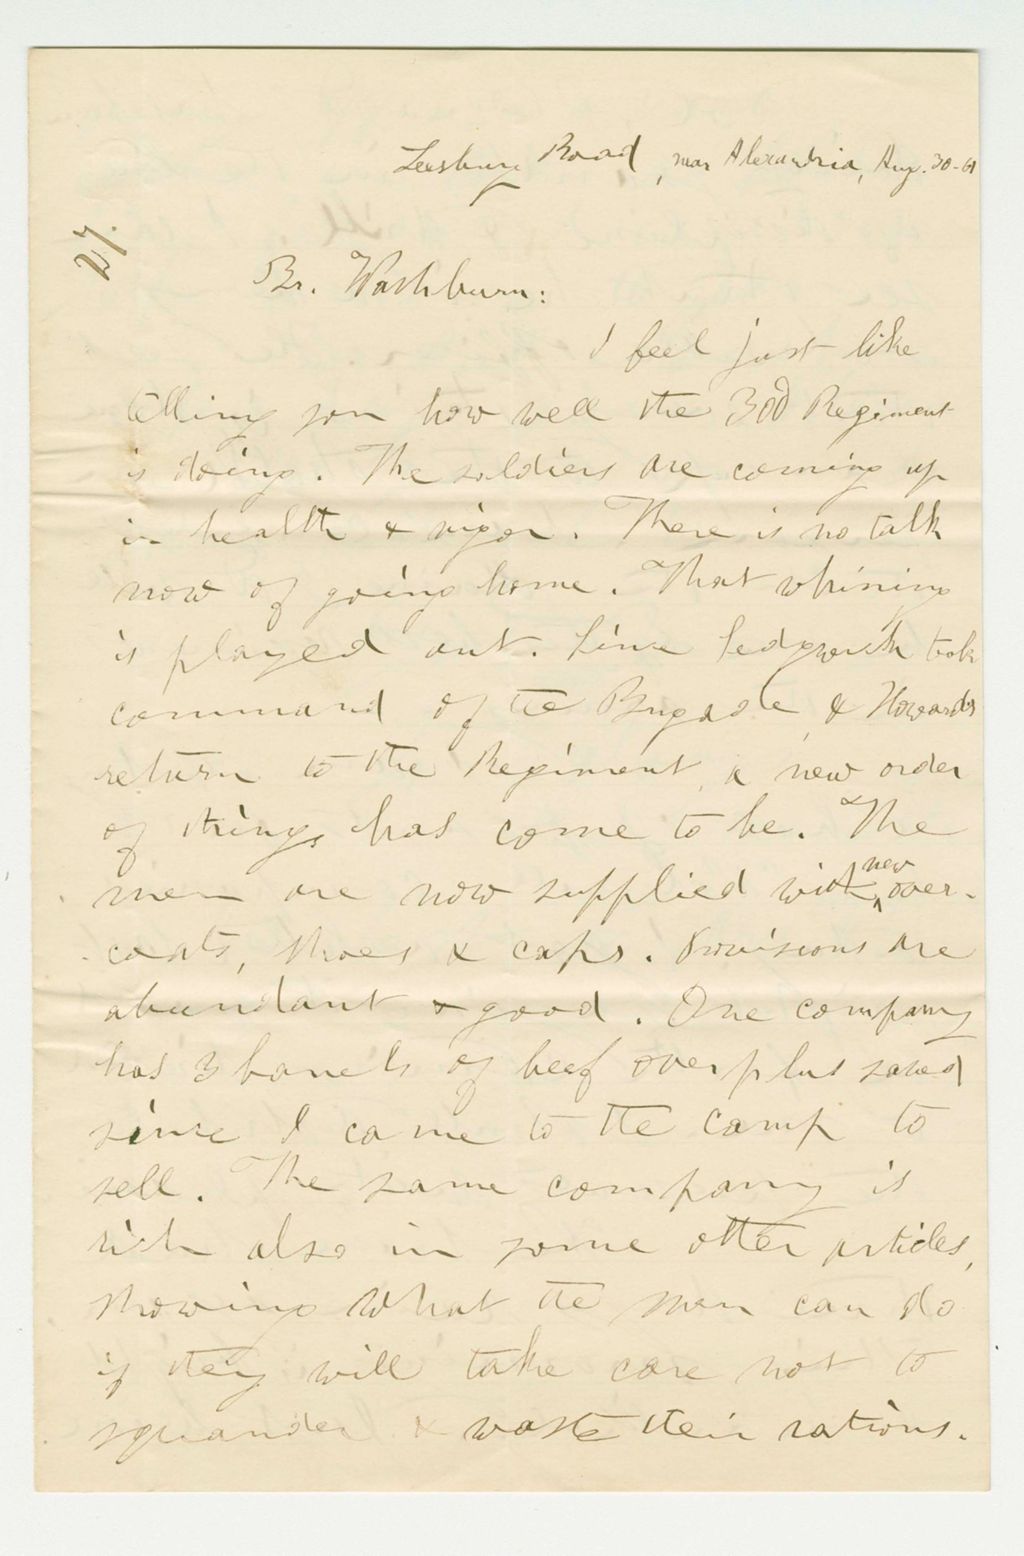 Leesburg Road, near Alexandria, Aug. 30-61
27.
Br. Washburn:
I feel just like
telling you how well the 3od Regiment
is doing. The soldiers are coming up
in health & vigor. There is no talk
now of going home. That whining
is played out. Since Sedgwick took
command of the Brigade, & Howards
return to the Regiment, a new order
of things has come to be. The
men are now supplied with new over-
coats, shoes & caps. Provisions are
abundant & good. One company
has 3 barrels of beef overplus saved
since I came to the camp to
sell. The same company is
rich also in some other articles,
showing what the men can do
if they will take care not to
squander & waste their rations.